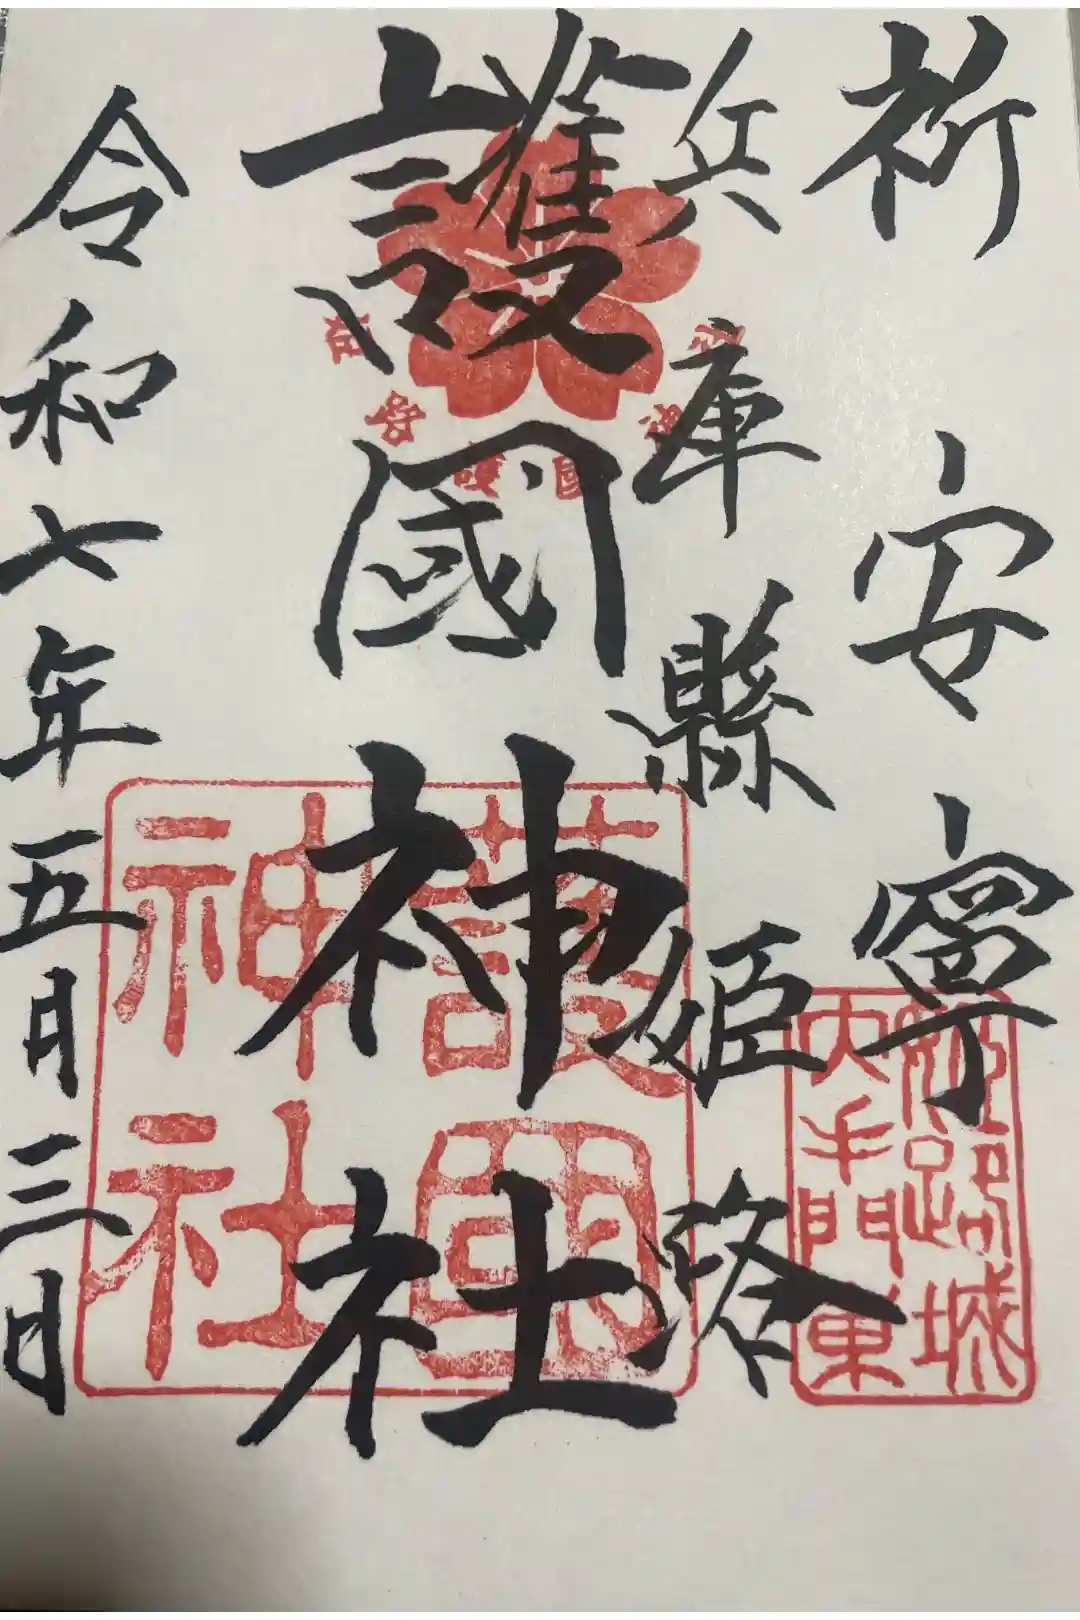 祈安寧
兵庫縣姫路
護國神社
令和七年五月三日
護國
神社
姫路城
大手門東